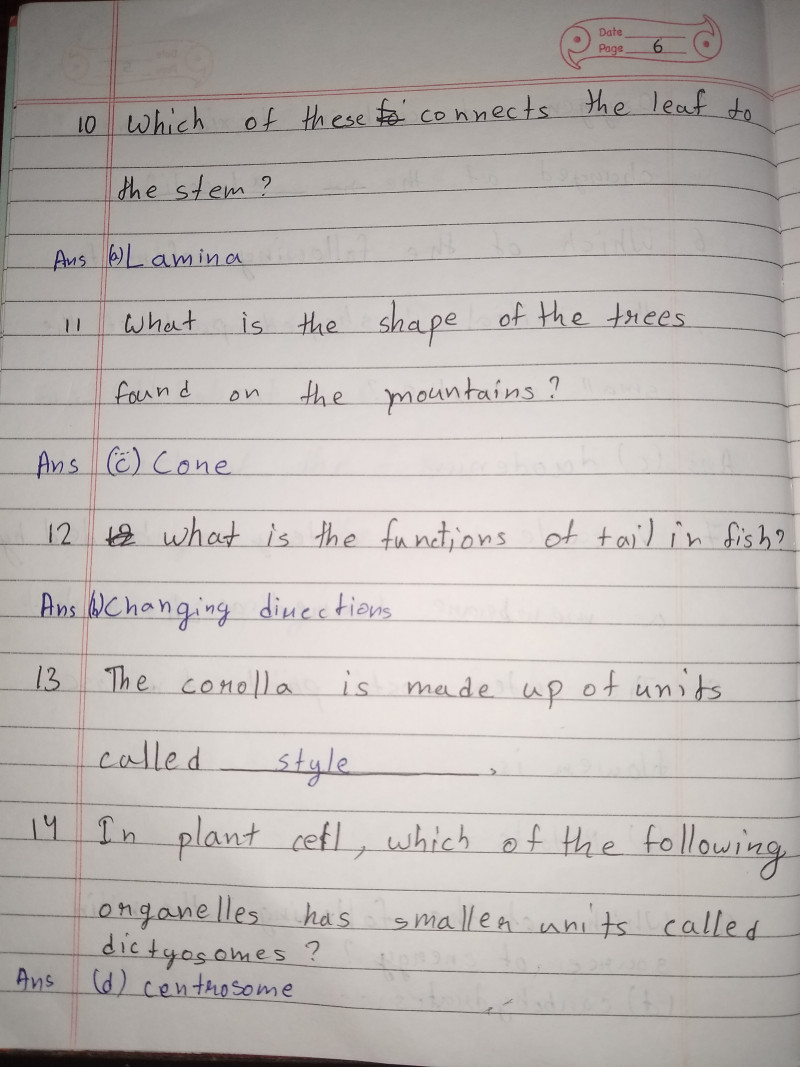 Date
Page 6
10 Which of these connects the leaf to
the stem?
Ans (a) Lamina
11 What is the shape of the trees
found on the mountains?
Ans (c) Cone
12 What is the functions of tail in fish?
Ans (b) Changing directions
13 The corolla is made up of units
called style.
14 In plant cell, which of the following
organelles has smaller units called
dictyosomes?
Ans (d) centrosome